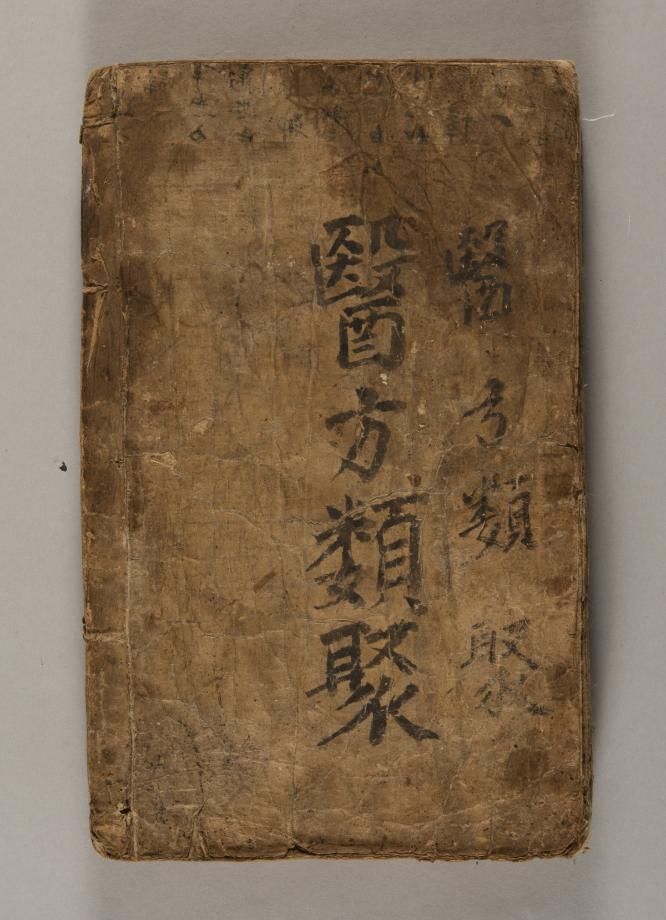 醫方類聚
醫方類聚